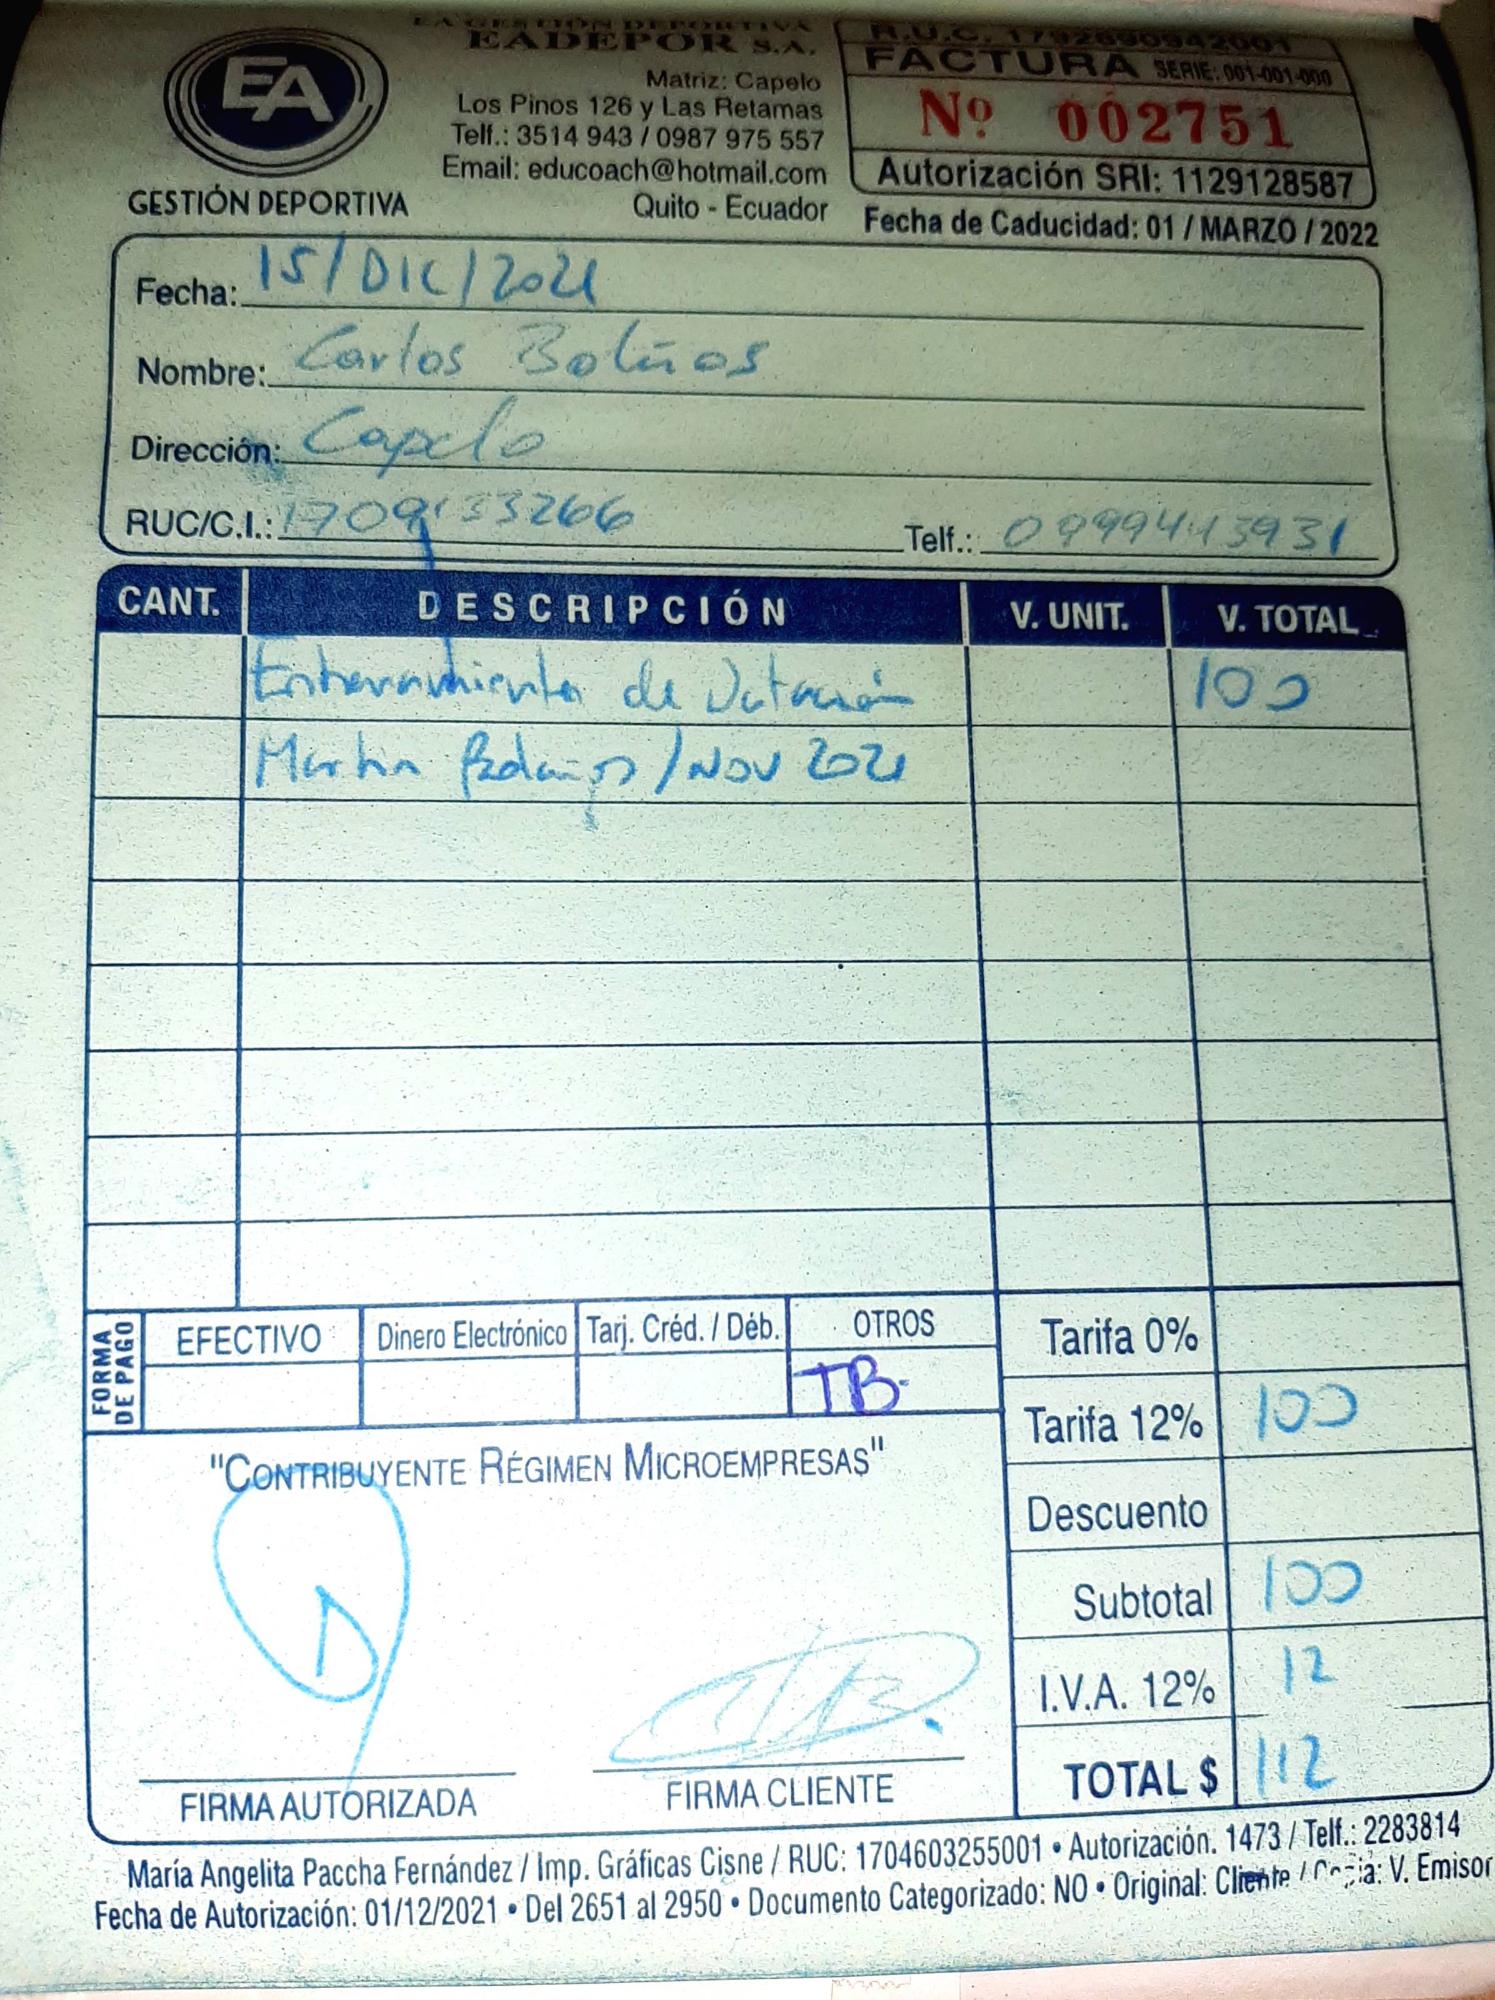 EA GESTIÓN DEPORTIVA
EADEPOR S.A.
Matriz: Capelo
Los Pinos 126 y Las Retamas
Telf.: 3514 943 / 0987 975 557
Email: educoach@hotmail.com
Quito - Ecuador
EA
GESTIÓN DEPORTIVA
R.U.C. 1792890942001
FACTURA SERIE: 001-001-000
Nº 002751
Autorización SRI: 1129128587
Fecha de Caducidad: 01 / MARZO / 2022
Fecha: 15/DIC/2021
Nombre: Carlos Bolaños
Dirección: Capelo
RUC/C.I.: 1709133266 Telf.: 0999443931
CANT. DESCRIPCIÓN V. UNIT. V. TOTAL
Entrenamiento de Natación 100
Bolaños / NOV 2021
FORMA DE PAGO
EFECTIVO Dinero Electrónico Tarj. Créd. / Déb. OTROS
TB.
Tarifa 0%
Tarifa 12% 100
Descuento
Subtotal 100
I.V.A. 12% 12
TOTAL $ 112
"CONTRIBUYENTE RÉGIMEN MICROEMPRESAS"
FIRMA AUTORIZADA FIRMA CLIENTE
María Angelita Paccha Fernández / Imp. Gráficas Cisne / RUC: 1704603255001 • Autorización. 1473 / Telf.: 2283814
Fecha de Autorización: 01/12/2021 • Del 2651 al 2950 • Documento Categorizado: NO • Original: Cliente / Copia: V. Emisor